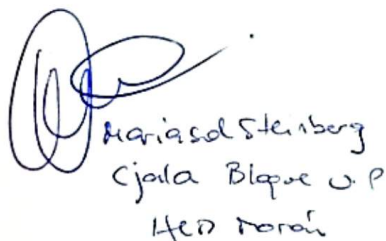 Mariasol Steinberg
Cjala Bloque U.P
HCD Morón